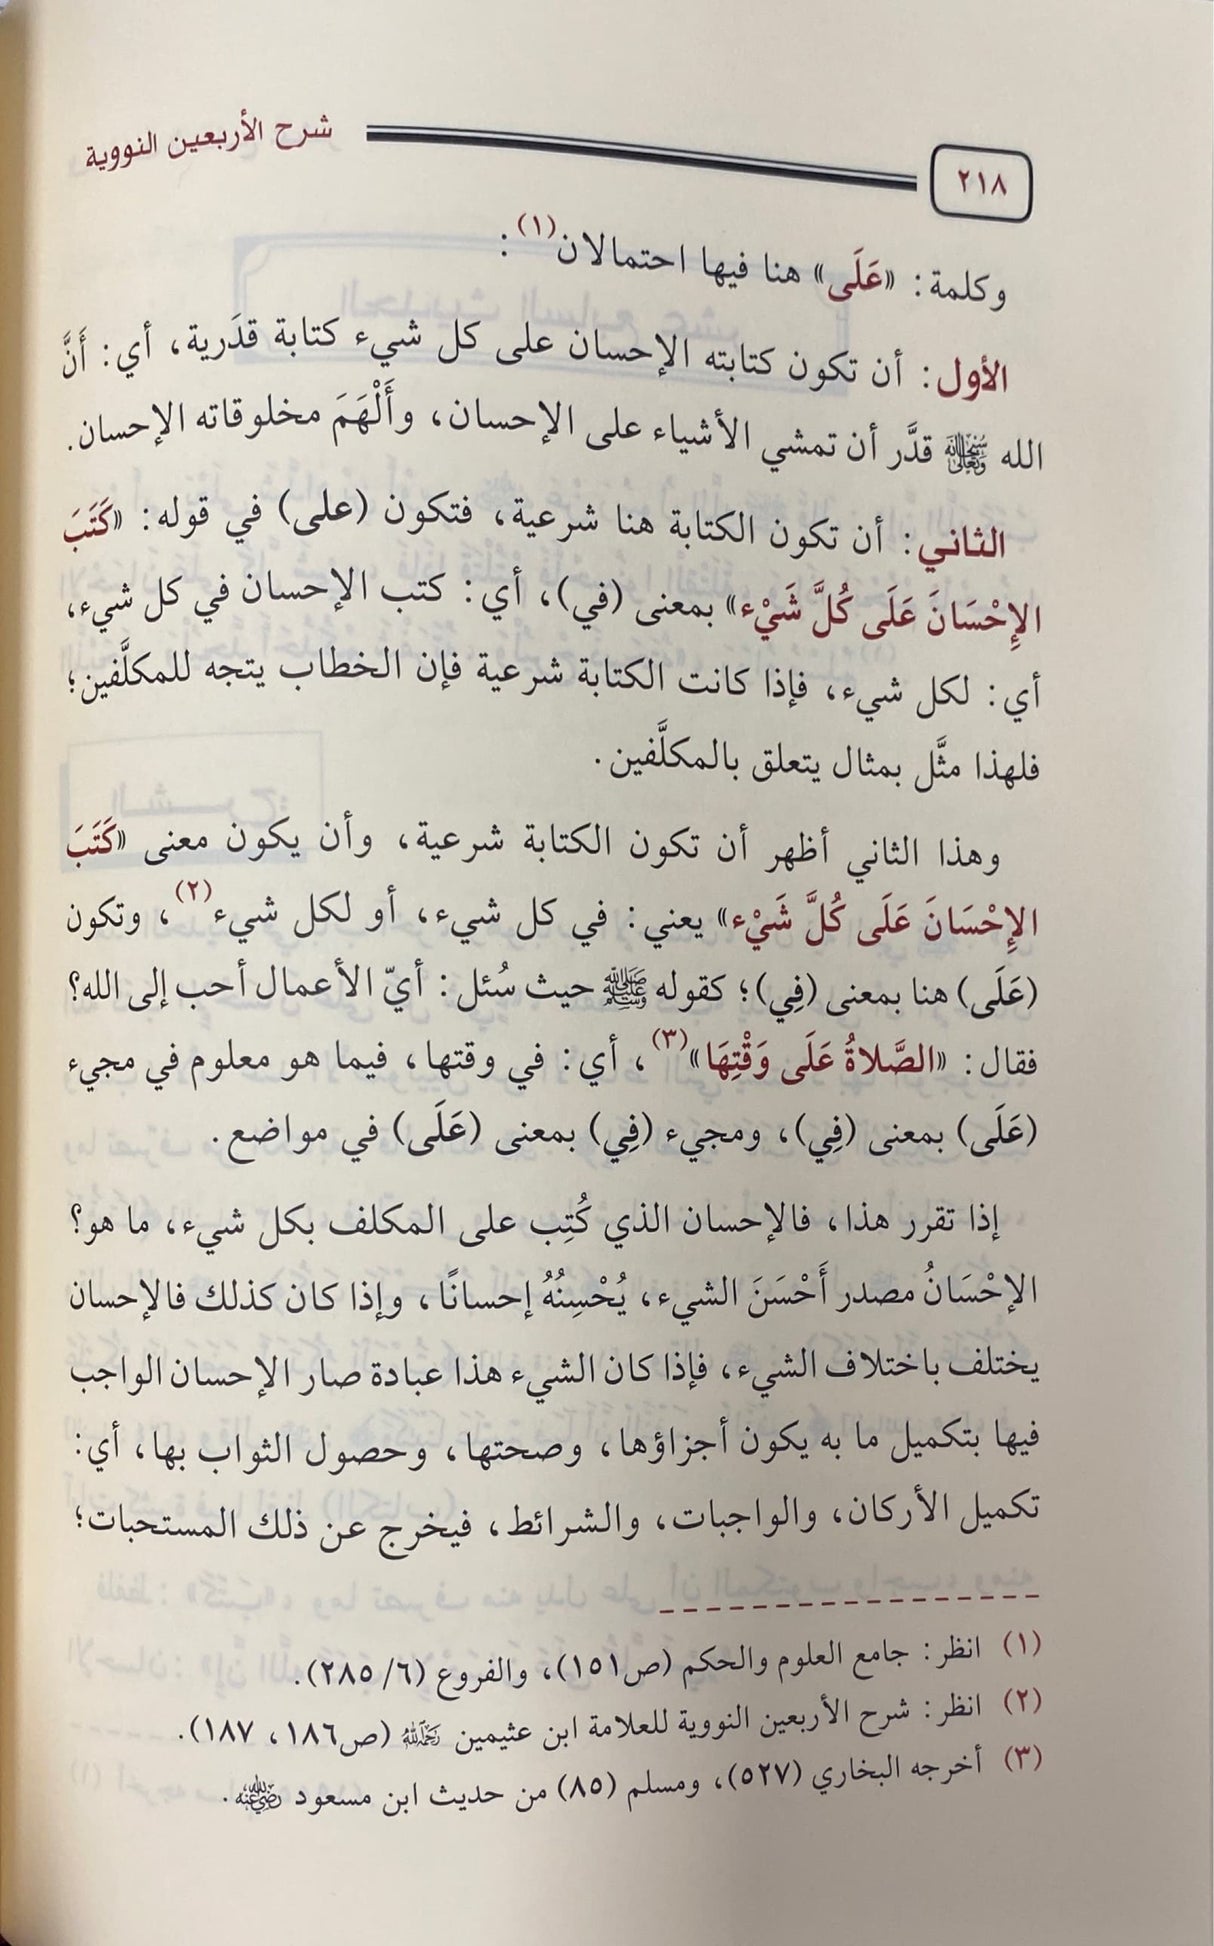 ٢١٨
شرح الأربعين النووية
وكلمة: «عَلَى» هنا فيها احتمالان(١):
الأول: أن تكون كتابته الإحسان على كل شيء كتابة قدَرية، أي: أَنَّ
الله سُبْحَانَهُ وَتَعَالَى قدَّر أن تمشي الأشياء على الإحسان، وأَلْهَمَ مخلوقاته الإحسان.
الثاني: أن تكون الكتابة هنا شرعية، فتكون (على) في قوله: «كَتَبَ
الإِحْسَانَ عَلَى كُلَّ شَيْء» بمعنى (في)، أي: كتب الإحسان في كل شيء،
أي: لكل شيء، فإذا كانت الكتابة شرعية فإن الخطاب يتجه للمكلَّفين؛
فلهذا مثَّل بمثال يتعلق بالمكلَّفين.
وهذا الثاني أظهر أن تكون الكتابة شرعية، وأن يكون معنى «كَتَبَ
الإِحْسَانَ عَلَى كُلَّ شَيْء» يعني: في كل شيء، أو لكل شيء(٢)، وتكون
(عَلَى) هنا بمعنى (فِي)؛ كقوله ﷺ حيث سُئل: أيّ الأعمال أحب إلى الله؟
فقال: «الصَّلاةُ عَلَى وَقْتِهَا»(٣)، أي: في وقتها، فيما هو معلوم في مجيء
(عَلَى) بمعنى (فِي)، ومجيء (فِي) بمعنى (عَلَى) في مواضع.
إذا تقرر هذا، فالإحسان الذي كُتِب على المكلف بكل شيء، ما هو؟
الإحْسَانُ مصدر أَحْسَنَ الشيء، يُحْسِنُهُ إحسانًا، وإذا كان كذلك فالإحسان
يختلف باختلاف الشيء، فإذا كان الشيء هذا عبادة صار الإحسان الواجب
فيها بتكميل ما به يكون أجزاؤها، وصحتها، وحصول الثواب بها، أي:
تكميل الأركان، والواجبات، والشرائط، فيخرج عن ذلك المستحبات؛
(١) انظر: جامع العلوم والحكم (ص١٥١)، والفروع (٦/ ٢٨٥).
(٢) انظر: شرح الأربعين النووية للعلامة ابن عثيمين رَحِمَهُ اللَّهُ (ص١٨٦، ١٨٧).
(٣) أخرجه البخاري (٥٢٧)، ومسلم (٨٥) من حديث ابن مسعود رَضِيَ اللَّهُ عَنْهُ.